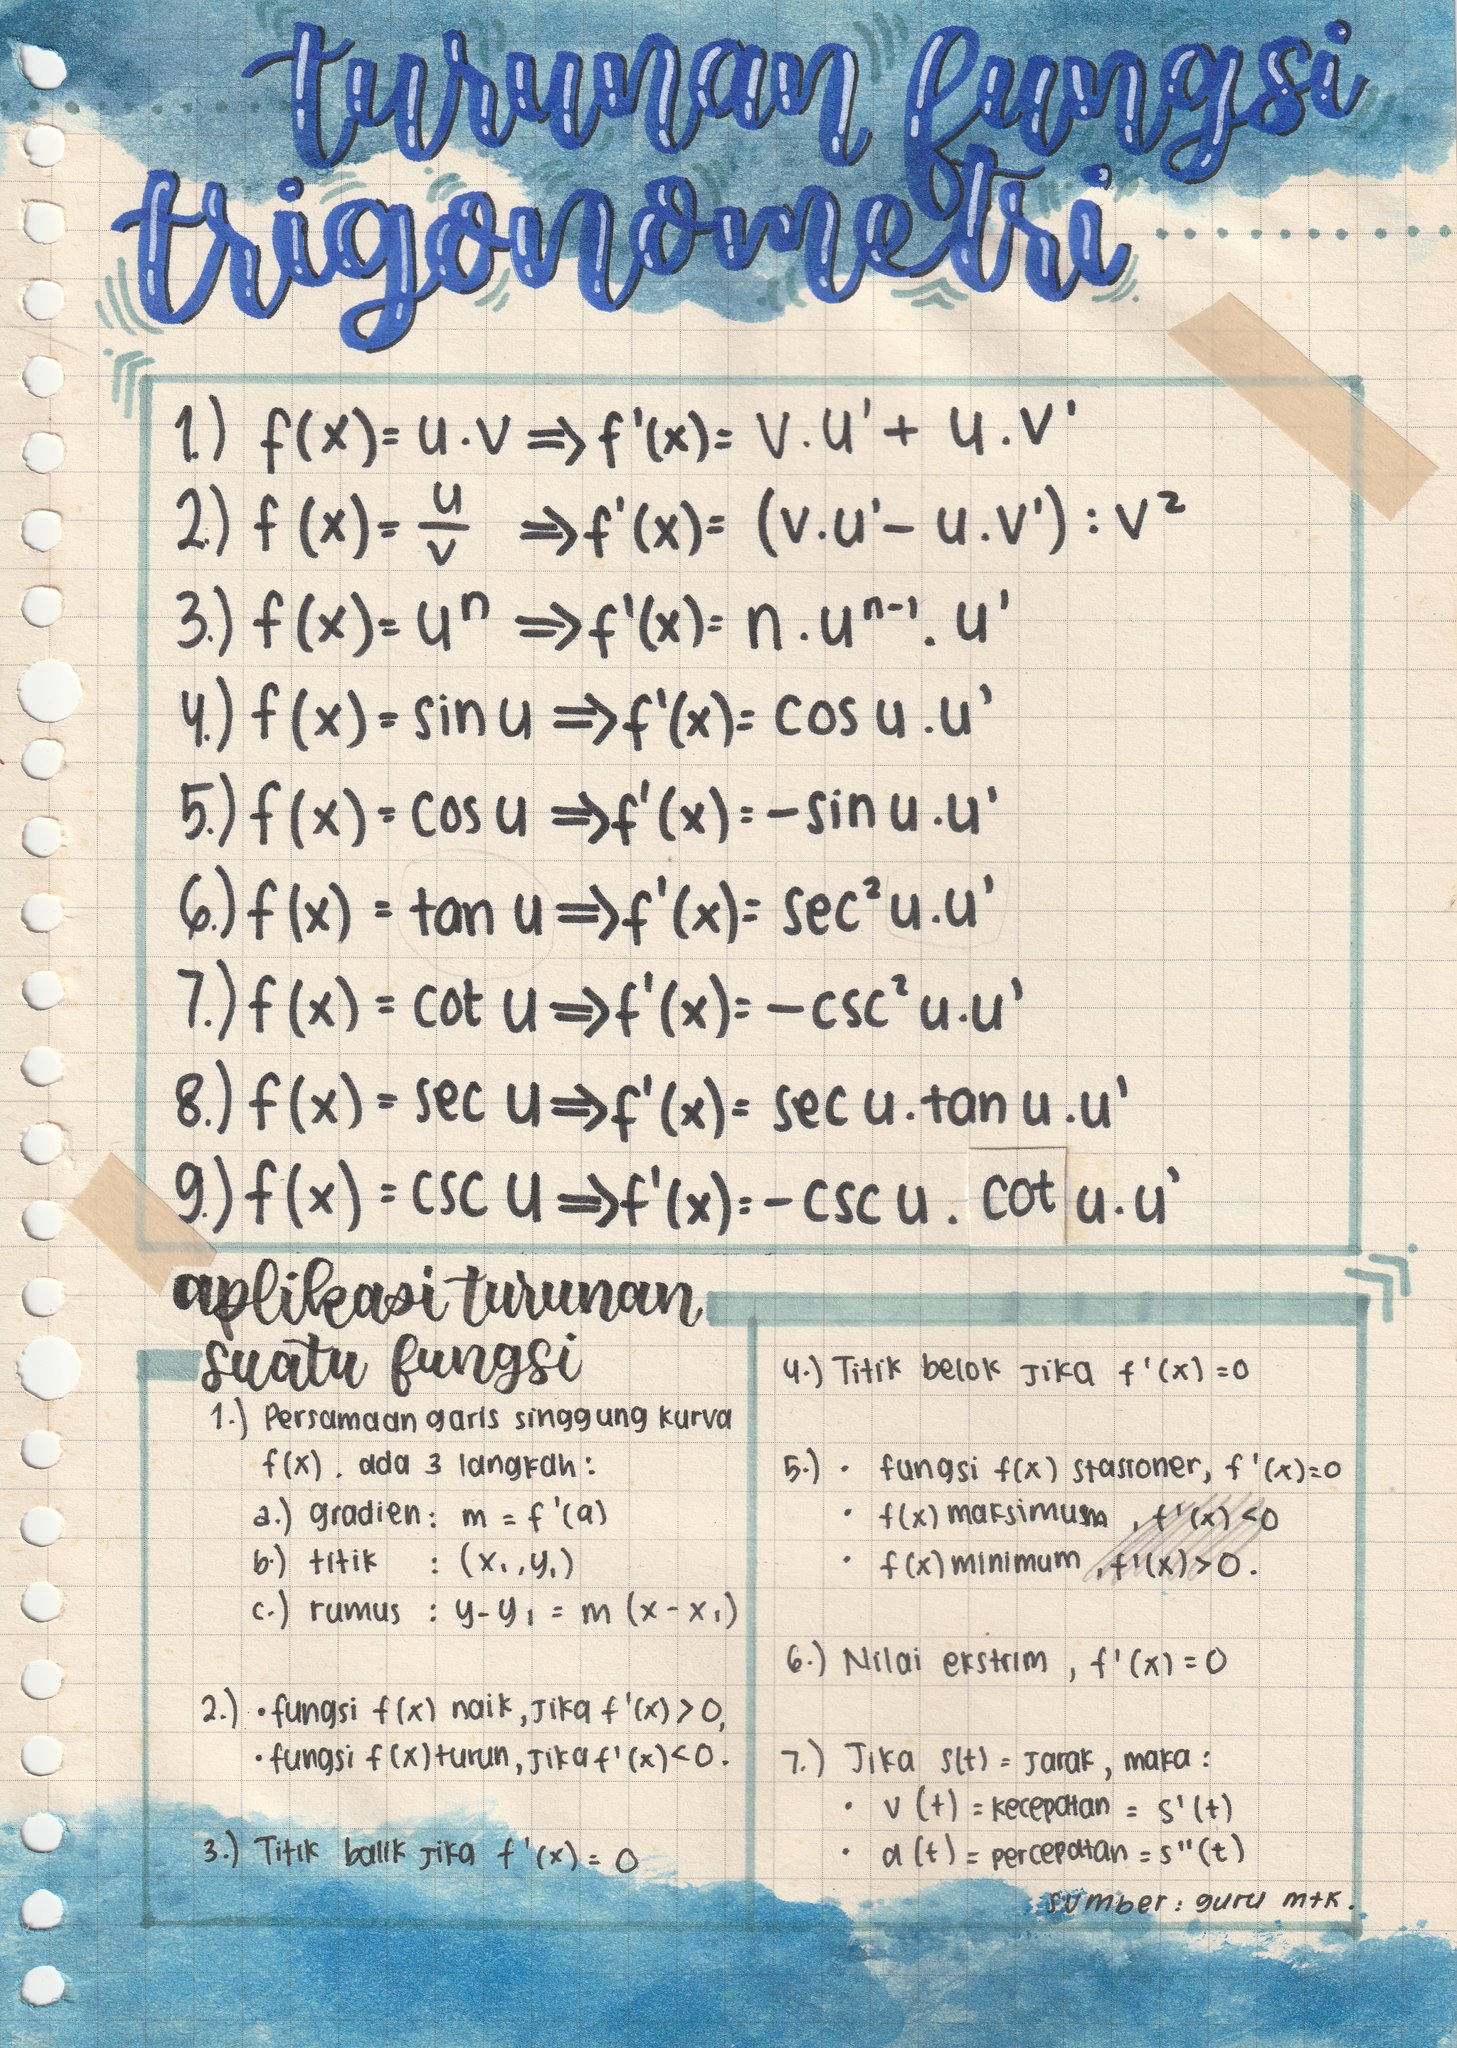 turunan fungsi
trigonometri
1.) f(x)= u.v ⇒ f'(x)= v.u' + u.v'
2.) f(x)= u/v ⇒ f'(x)= (v.u' - u.v') : v²
3.) f(x)= uⁿ ⇒ f'(x)= n.uⁿ⁻¹.u'
4.) f(x) = sin u ⇒ f'(x)= cos u.u'
5.) f(x) = cos u ⇒ f'(x) = -sin u.u'
6.) f(x) = tan u ⇒ f'(x)= sec² u.u'
7.) f(x) = cot u ⇒ f'(x)= -csc² u.u'
8.) f(x) = sec u ⇒ f'(x)= sec u.tan u.u'
9.) f(x) = csc u ⇒ f'(x)= -csc u. cot u.u'
aplikasi turunan
suatu fungsi
1.) Persamaan garis singgung kurva
f(x). ada 3 langkah:
a.) gradien: m = f'(a)
b.) titik : (x₁,y₁)
c.) rumus : y-y₁ = m (x-x₁)
2.) • fungsi f(x) naik, jika f'(x) > 0,
• fungsi f(x) turun, jika f'(x) < 0.
3.) Titik balik jika f'(x) = 0
4.) Titik belok jika f'(x) = 0
5.) • fungsi f(x) stasioner, f'(x)=0
• f(x) maksimum, f'(x) < 0
• f(x) minimum, f'(x) > 0.
6.) Nilai ekstrim, f'(x) = 0
7.) Jika s(t) = jarak, maka :
• v(t) = kecepatan = s'(t)
• a(t) = percepatan = s"(t)
sumber: guru mtk.